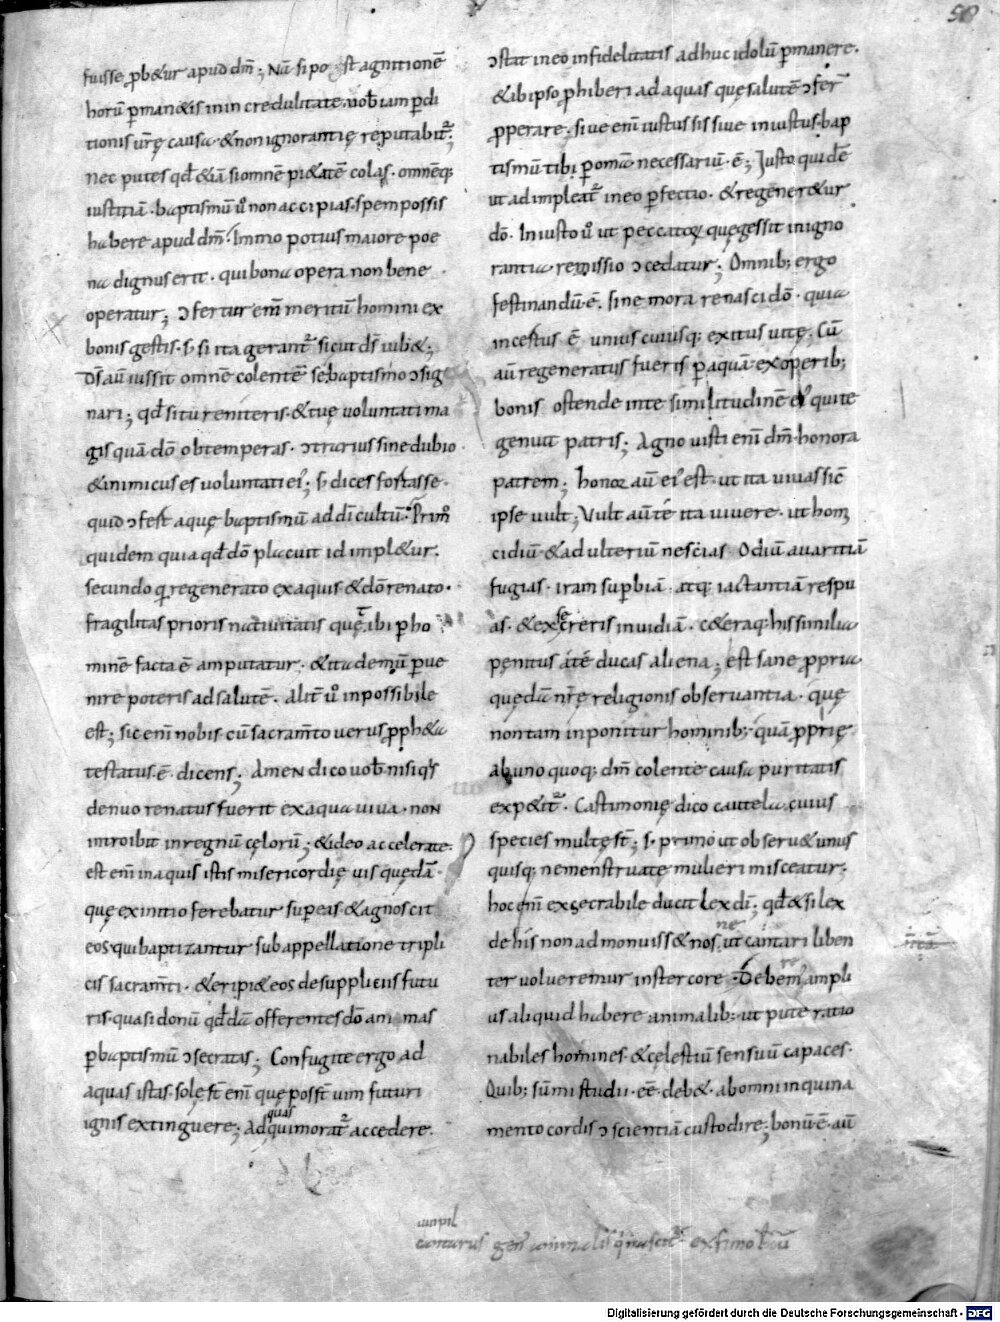 58
fuisse ꝓb&ur apud dm̄; Nā si po st agnitionē
horū ꝑman&is in incredulitate uob̄ iam ꝑdi
tionis ur̄ę causa · & non ignorantię reputabit᷑;
nec putes qd̄ &iā si omnē pi&atē colas · omnēq;
iustitiā · baptismū ū non accipias · spem possis
habere apud dm̄. Immo potius maiore poe
na dignus erit · qui bona opera non bene
operatur; ɔfertur em̄ meritū homini ex
bonis gestis · s̄ si ita gerant᷑ sicut ds̄ iub&;
Ds̄ aū iussit omnē colentē se baptismo ɔsig
nari; qd̄ si tu reniteris · & tuę uoluntati ma
gis quā dō obtemperas · ɔtrarius sine dubio
& inimicus es uoluntati ei᷒; s̄ dices fortasse ·
quid ɔfert aquę baptismū ad dī cultū · Primū
quidem quia qd̄ dō placuit id impl&ur.
secundo q regenerato ex aquis & dō renato ·
fragilitas prioris natiuitatis quę t̄ ibi ꝑ ho
minē facta ē amputatur · & ita demū ꝑue
nire poteris ad salutē · Alit̄ ū inpossibile
est; sic enī nobis cū sacram̄to uerus ꝓph&a
testatus ē dicens; Amen dico uob̄ nisi q's
denuo renatus fuerit ex aqua uiua · non
introibit in regnū cęlorū; & ideo accelerate.
est enī in aquis istis misericordię uis quędā ·
quę ex initio ferebatur suꝑ eas & agnoscit
eos qui baptizantur sub appellatione tripli
cis sacram̄ti · & eripi& eos de suppliciis futu
ris · quasi donū qd̄dā offerentes dō animas
ꝑ baptismū ɔsecratas; Confugite ergo ad
aquas istas · solę st̄ enī quę poss̄t uim futuri
quas
ignis extinguere; Ad qui morat᷑ accedere.
ɔstat in eo infidelitatis adhuc idolū ꝑmanere.
& ib ipso ꝓhiberi ad aquas quę salutē ɔfer̄
ꝓperare · siue enī iustus sis siue iniustus · bap
tismū tibi ꝑ omā necessariū · ē; Iusto quidē
ut adimpleat᷑ in eo ꝑfectio · & regener&ur
dō. Iniusto ū ut peccatoꝝ quę gessit in igno
rantia remissio ɔcedatur; Omnib; ergo
festinandū · ē · sine mora renasci dō · quia
incertus ē unius cuiusq; exitus uitę; Cū
aū regeneratus fueris ꝑ aquā ex operib;
bonis ostende in te similitudinē ei᷒ qui te
genuit patris; Agnouisti enī dm̄ · honora
patrem; honoꝛ aū ei᷒ est · ut ita uiuas sic̄
ipse uult; Vult aū te ita uiuere · ut homi
cidiū & adulteriū nescias · Odiū auaritiā
fugias · iram suꝑbiā · atq; iactantiā respu
se
as · & execreris inuidiā · c&eraq; his similia
pęnitus a te ducas aliena; est sane ꝓpria
quędā nr̄ę religionis obseruantia · quę
non tam inponitur hominib; quā ꝓprię
ab uno quoq; dm̄ colente causa puritatis
exp&it᷑. Castimonię dico cautela, cuius
species multę st̄; s̄ · primo ut obseru& unus
quisq; ne menstruate mulieri misceatur;
hoc enī exsecrabile ducit lex dī; qd̄ & si lex
ne
de his non admonuiss& nos, ut cantari liben
re
ter uolueremur in stercore · Debem᷒ ampli
us aliquid habere animalib; ut pute ratio
nabiles homines · & cęlestiū sensuū capaces ·
Quib; sūmi studii · eē · deb& · ab omni inquina
mento cordis ɔscientiā custodire; bonū · ē · aū
cantarus gen᷒ animalis q' nascit᷑ ex fimo boū
Digitalisierung gefördert durch die Deutsche Forschungsgemeinschaft - DFG